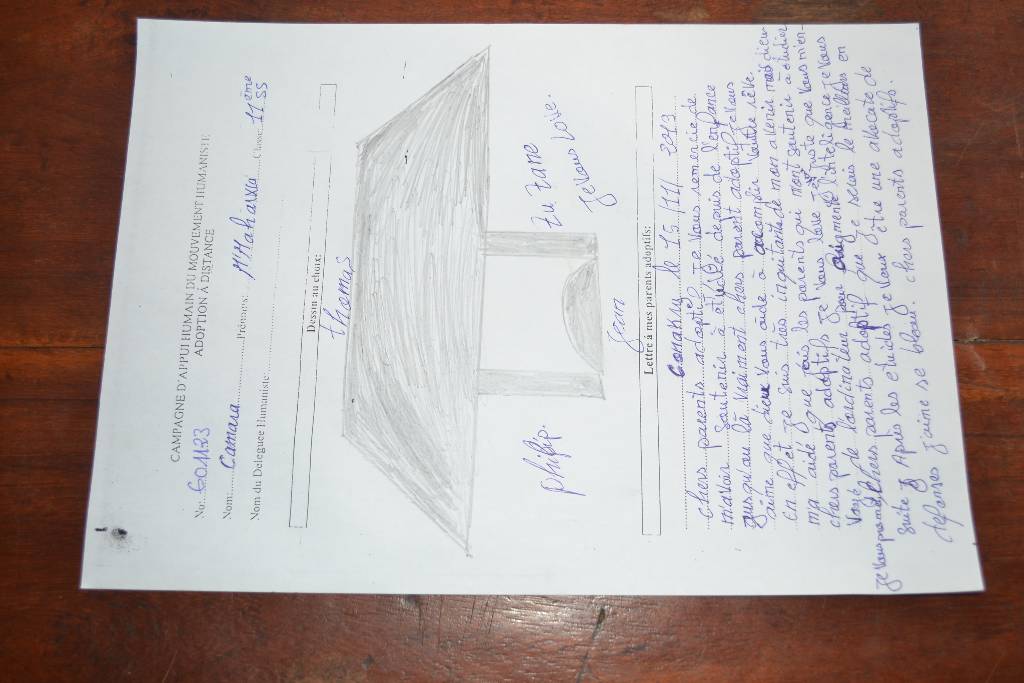 CAMPAGNE D'APPUI HUMAIN DU MOUVEMENT HUMANISTE
ADOPTION À DISTANCE
No: GOM123
Nom: Camara Prénoms: M'Mahawa Classe: 11ème SS
Nom du Deleguee Humaniste:
Dessin au choix:
thomas
Philip.
Zu Zane
Je vous Loive.
Lettre à mes parents adoptifs:
Conakry le 15/11/2013
chers parents adoptif je vous remercie de
mavoir soutenir à etudié depuis de l'enfance
jusqu'au là vraiment chers parent adoptif je vous
aime que dieu vous aide à accomplir voutre rêve.
en effet je suis très inquitante de mon avenir mais dieu
ma aidé que ais les parents qui mont soutenir à étudier
chers parents adoptifs je vous que vous mien-
de lordinateur pour augmenté l'inteligence je vous
je vous promer chers parents adoptif que je serais le meilleurs en
suite Après les etudes je veux être une avocate de
defanses j'aime se boulou. chers parents adoptifs.